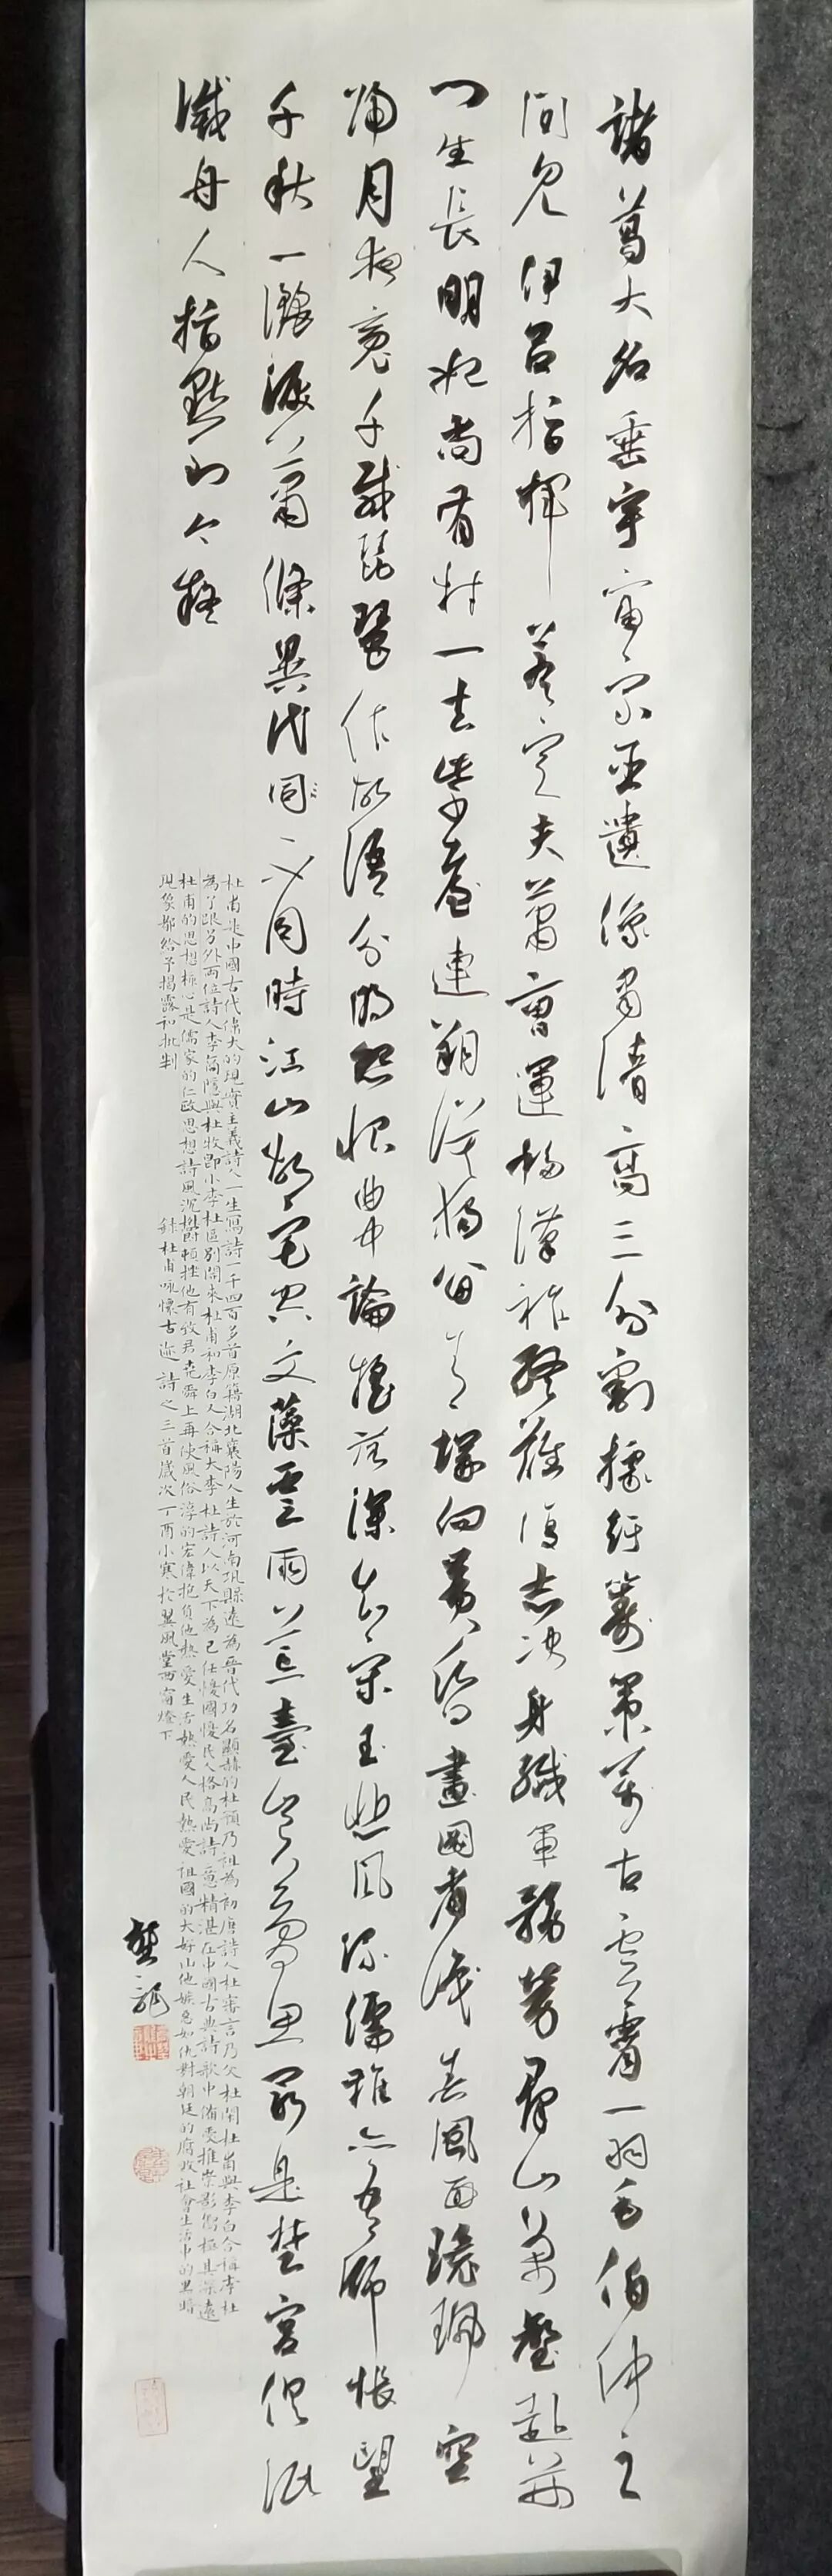 諸葛大名垂宇宙宗臣遺像肅清高三分割據紆籌策萬古雲霄一羽毛伯仲之
間見伊呂指揮若定失蕭曹運移漢祚終難復志決身殲軍務勞群山萬壑赴荊
門生長明妃尚有村一去紫臺連朔漠獨留青塚向黃昏畫圖省識春風面環珮空
歸月夜魂千載琵琶作胡語分明怨恨曲中論搖落深知宋玉悲風流儒雅亦吾師悵望
千秋一灑淚蕭條異代不同時江山故宅空文藻雲雨荒臺豈夢思最是楚宮俱泯
滅舟人指點到今疑
杜甫是中國古代偉大的現實主義詩人一生寫詩一千四百多首原籍湖北襄陽人生於河南鞏縣遠為晉代功名顯赫的杜預乃祖為初唐詩人杜審言乃父杜閑杜甫與李白合稱李杜
為了跟另外兩位詩人李商隱與杜牧即小李杜區別開來杜甫和李白人合稱大李杜詩人以天下為己任憂國憂民人格高尚詩藝精湛在中國古典詩歌中備受推崇影響極其深遠
杜甫的思想核心是儒家的仁政思想詩風沉鬱頓挫他有致君堯舜上再使風俗淳的宏偉抱負他熱愛生活熱愛人民熱愛祖國的大好山他嫉惡如仇對朝廷的腐敗社會生活中的黑暗
現象都給予揭露和批判 錄杜甫詠懷古迹詩之三首歲次丁酉小寒於翼風堂西窗燈下
龔龍